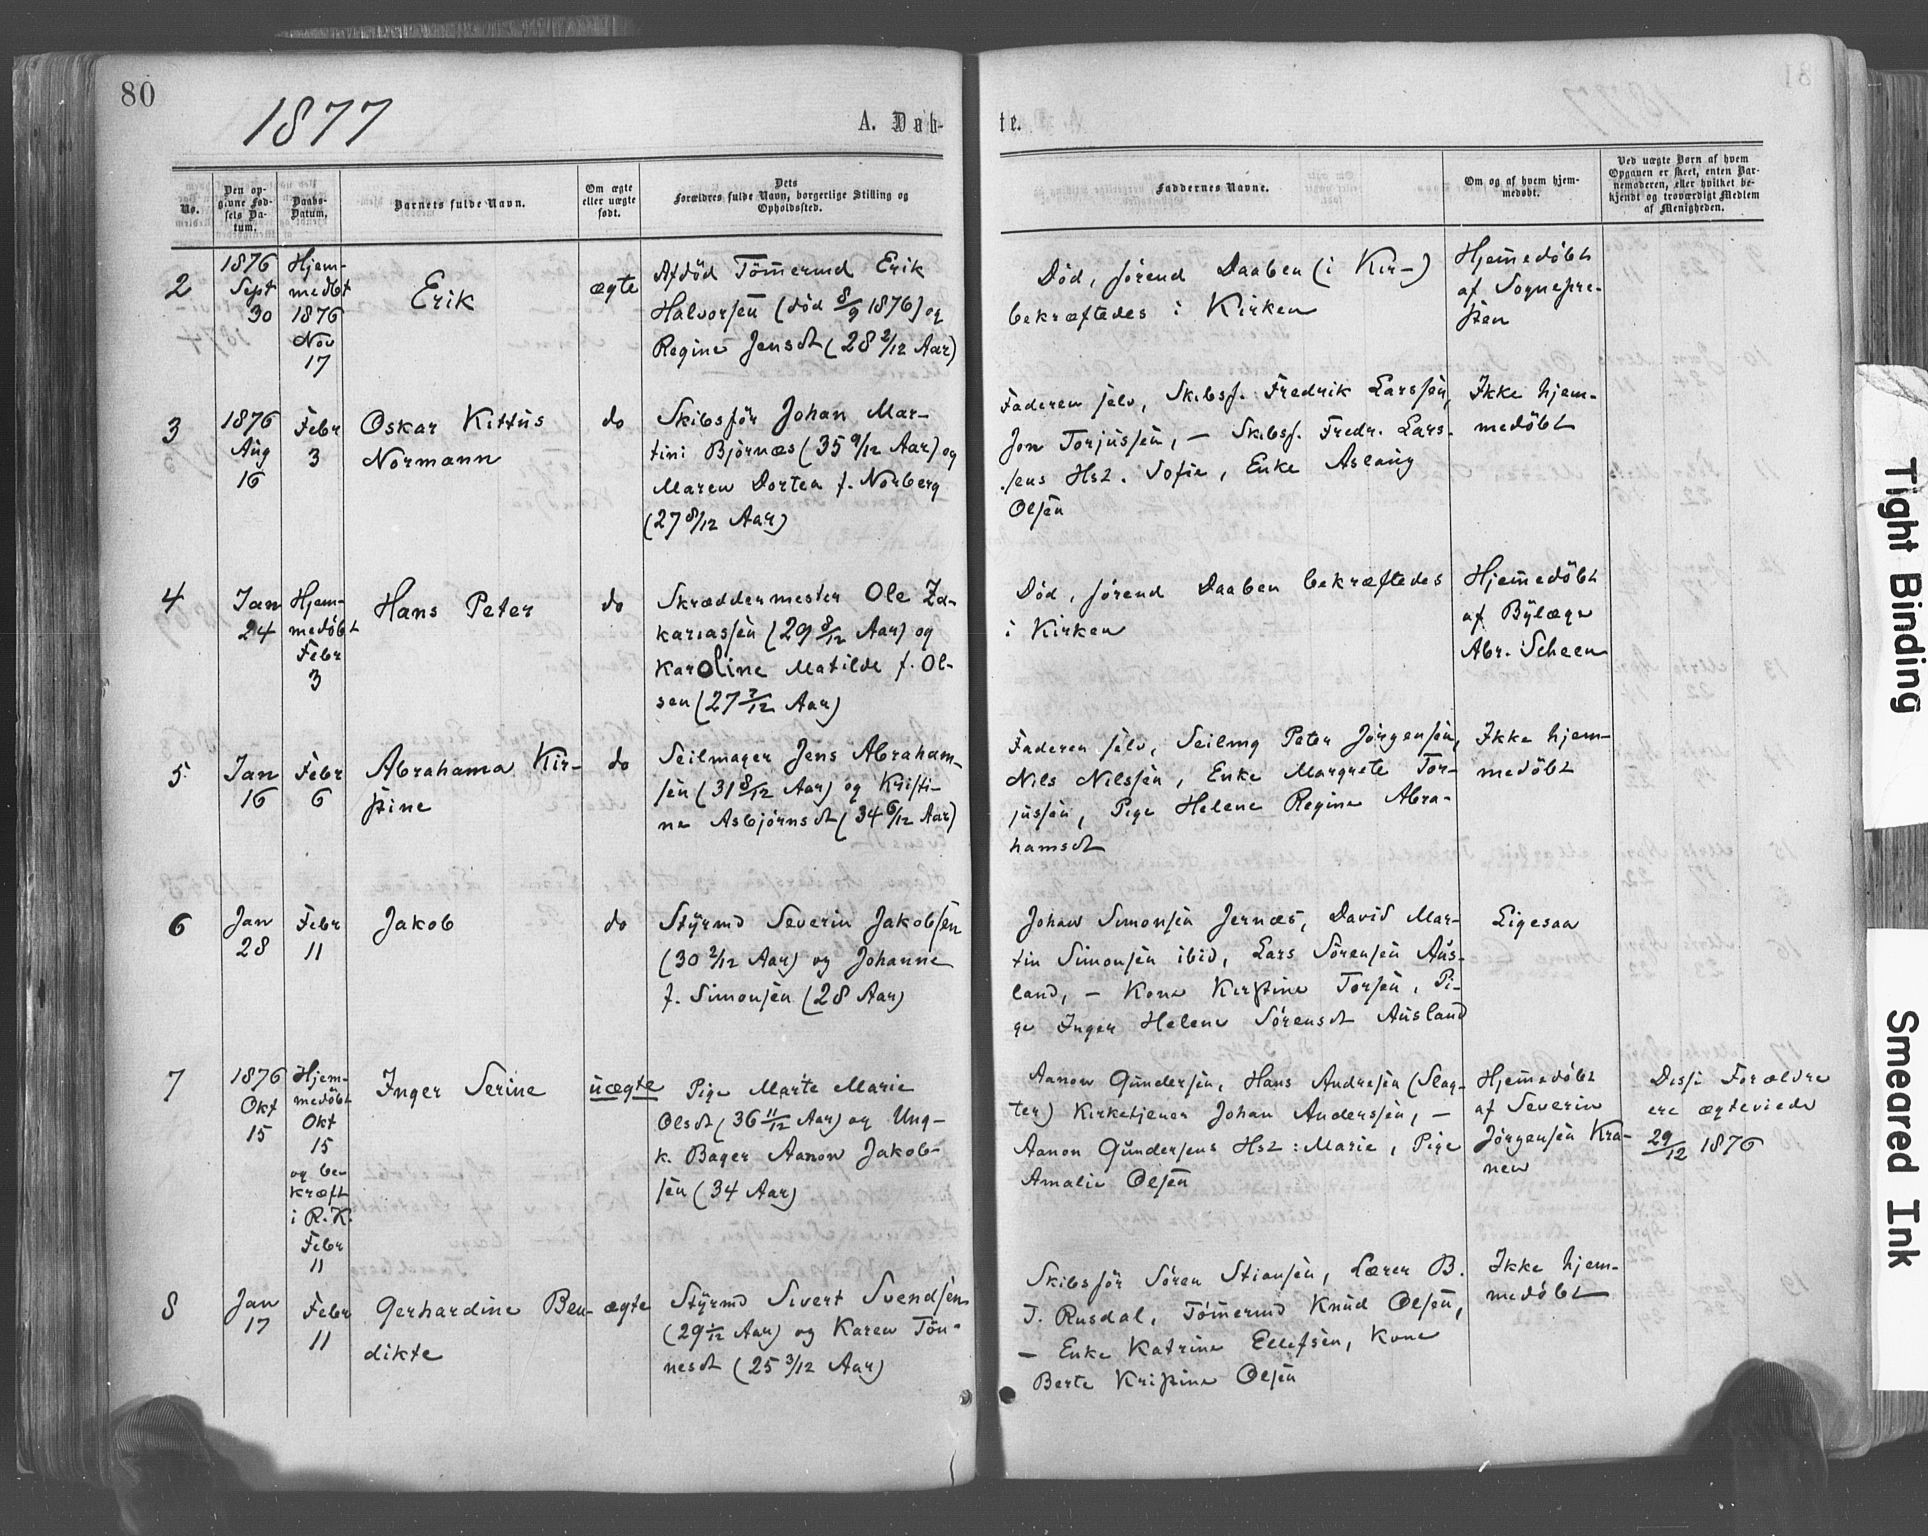 80
1877
A. Døb-
te.
No.
Den op-
givne Fød-
sels Da-
tum.
Daabs-
Datum.
Barnets fulde Navn.
Om ægte
eller uægte
født.
Dets
Forældres fulde Navn, borgerlige Stilling og
Opholdssted.
Faddernes Navne.
Om og af hvem hjem-
medøbt.
Ved uægte Børn af hvem
Opgaven er skeet, enten Bar-
nemoderen, eller hvilket be-
kjendt og troværdigt Medlem
af Menigheden.
2
1876
Sept
30
Hjem-
medöbt
1876
Nov
17
Erik
ægte
Afdöd Tömermd Erik
Halvorsen (död 8/9 1876) og
Regine Jensdt (28 2/12 Aar)
Död, förend Daaben (i Kir-)
bekræftedes i Kirken
Hjemmedöbt
af Sognepre-
sten
3
1876
Aug
16
Febr
3
Oskar Kittus
Normann
do
Skibsför Johan Mar-
tini Björnæs (35 9/12 Aar) og
Maren Dortea f. Norberg
(27 8/12 Aar)
Faderen selv, Skibsf. Fredrik Larssen,
Jon Torjussen, — Skibsf. Fredr. Lars-
sens Hst. Sofie, Enke Aslaug
Olsen
Ikke hjem-
medöbt
4
Jan
24
Hjem-
medöbt
Febr
3
Hans Peter
do
Skræddermester Ole Za-
kariassen (29 8/12 Aar) og
Karoline Matilde f. Ol-
sen (27 7/12 Aar)
Död, förend Daaben bekræftedes
i Kirken
Hjemmedöbt
af Bylæge
Abr. Scheen
5
Jan
16
Febr
6
Abrahama Kir-
stine
do
Seilmager Jens Abraham-
sen (31 8/12 Aar) og Kristi-
ne Asbjörnsdt (34 6/12 Aar)
Faderen selv, Seilmg Peter Jörgensen,
Nils Nilssen, Enke Margrete Tor-
jussen, Pige Helene Regine Abra-
hamsdt
Ikke hjem-
medöbt
6
Jan
28
Febr
11
Jakob
do
Styrmd Severin Jakobsen
(30 2/12 Aar) og Johanne
f. Simonsen (28 Aar)
Johan Simonsen Jernæs, David Mar-
tin Simonsen ibid, Lars Sörensen Aus-
land, — Kone Kirstine Torsen, Pi-
ge Inger Helene Sörensdt Ausland
Ligesaa
7
1876
Okt
15
Hjem-
medöbt
Okt
15
og be-
kræft
i R. K.
Febr
11
Inger Serine
uægte
Pige Marte Marie
Olsdt (36 11/12 Aar) og Ung-
k. Bager Aanon Jakob-
sen (34 Aar)
Aanon Gundersen, Hans Andresen (Slag-
ter) Kirketjener Johan Anderssen, —
Aanon Gundersens Hst: Marie, Pige
Amalie Olsen
Hjemmedöbt
af Severin
Jörgensen Kra-
nen
Disse Forældre
ere ægteviede
29/12 1876
8
Jan
17
Febr
11
Gerhardine Ben-
dikte
ægte
Styrmd Sivert Svendsen
(29 1/12 Aar) og Karen Tön-
nesdt (25 3/12 Aar)
Skibsför Sören Stiansen, Lærer B.
T. Rusdal, Tömermd Knud Olsen,
— Enke Katrine Ellefsen, Kone
Berte Kristine Olsen
Ikke hjem-
medöbt
Tight Binding
Smeared Ink